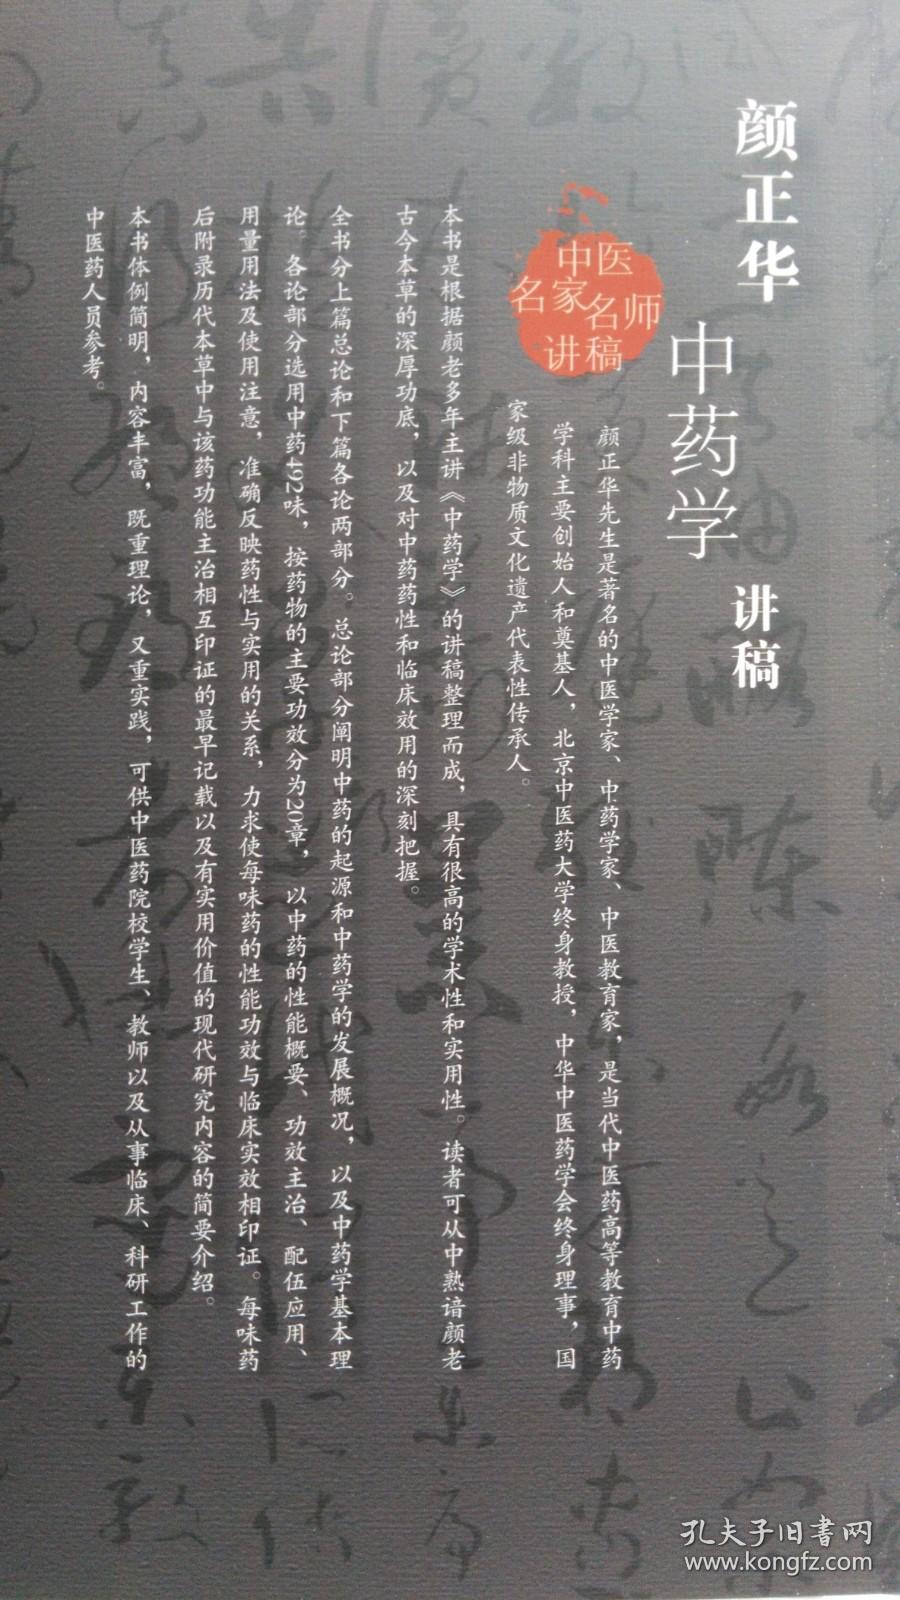 颜正华
中药学
讲稿
中医
名家名师
讲稿
颜正华先生是著名的中医学家、中药学家、中医教育家，是当代中医药高等教育中药
学科主要创始人和奠基人，北京中医药大学终身教授，中华中医药学会终身理事，国
家级非物质文化遗产代表性传承人。
本书是根据颜老多年主讲《中药学》的讲稿整理而成，具有很高的学术性和实用性。读者可从中熟谙颜老
古今本草的深厚功底，以及对中药药性和临床效用的深刻把握。
全书分上篇总论和下篇各论两部分。总论部分阐明中药的起源和中药学的发展概况，以及中药学基本理
论。各论部分选用中药492味，按药物的主要功效分为20章，以中药的性能概要、功效主治、配伍应用、
用量用法及使用注意，准确反映药性与实用的关系，力求使每味药的性能功效与临床实效相印证。每味药
后附录历代本草中与该药功能主治相互印证的最早记载以及有实用价值的现代研究内容的简要介绍。
本书体例简明，内容丰富，既重理论，又重实践，可供中医药院校学生、教师以及从事临床、科研工作的
中医药人员参考。
孔夫子旧书网
www.kongfz.com